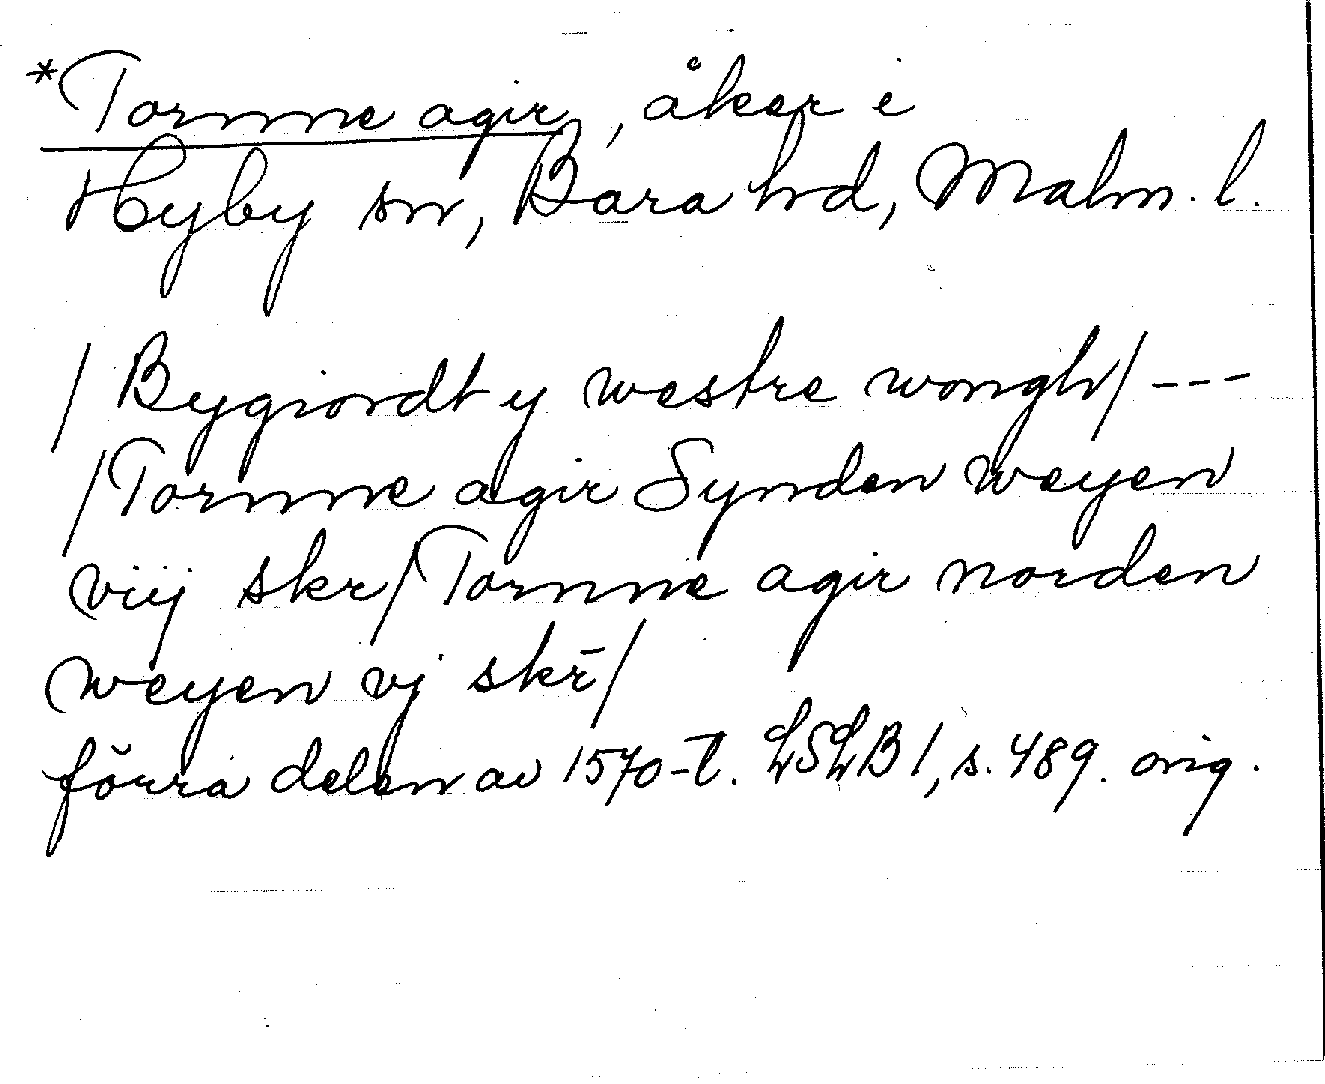 *Tornne agir, åker i
Hyby sn, Bara hd, Malm. l.
/Bygiordt y westre wongh/---
/Tornne agir Synden weyen
viij skr/Tornne agir norden
weyen vj skr̄/
förra delen av 1570-t. LSLB 1, s. 489. orig.